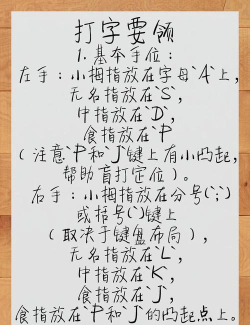 打字要领
1. 基本手位：
左手：小拇指放在字母`A`上，
无名指放在`S`，
中指放在`D`，
食指放在`P
（注意`P和`J键上有小凸起，
帮助盲打定位）。
右手：小拇指放在分号(`;`)
或括号(`)键上
（取决于键盘布局），
无名指放在`L`，
中指放在`K`，
食指放在`J`，
食指放在`P和`J`的凸起点上。